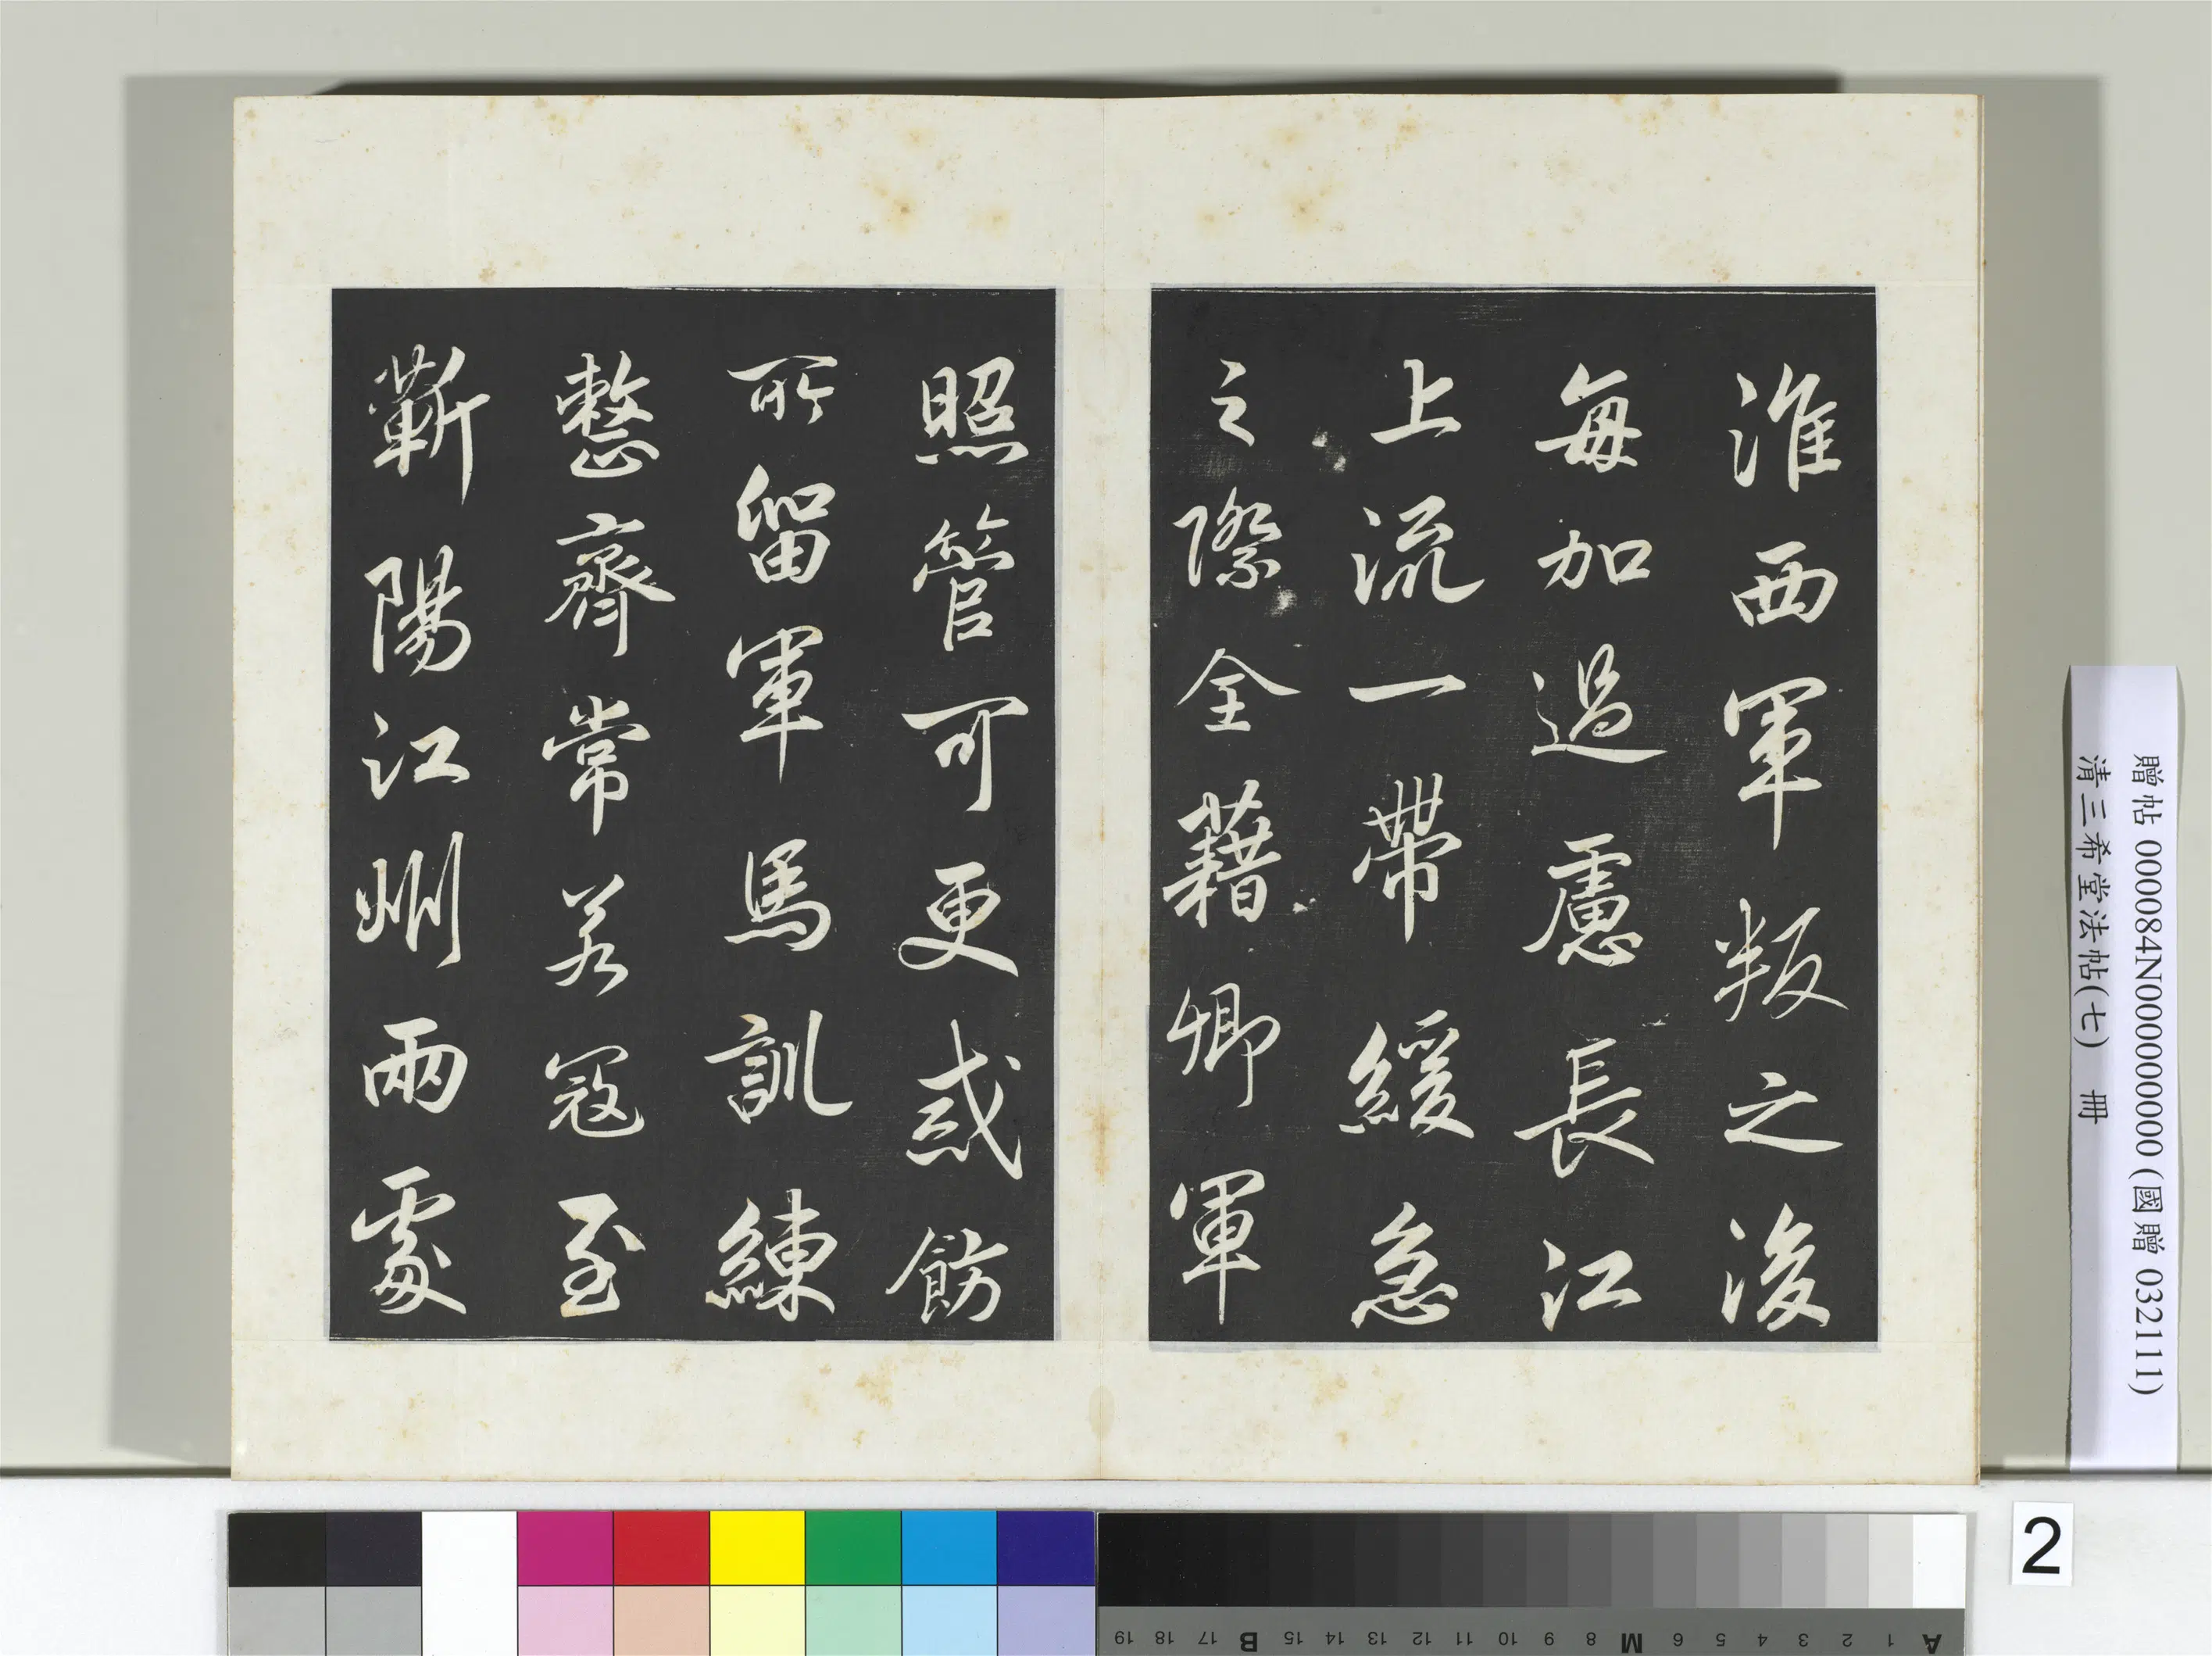 淮西軍叛之後
每加過慮長江
上流一帶緩急
之際全藉卿軍
照管可更戒飭
所留軍馬訓練
整齊常若寇至
蘄陽江州兩處
贈帖 000084N000000000 (國贈 032111)
清三希堂法帖(七) 冊
2
A 1 2 3 4 5 6 M 8 9 10 11 12 13 14 15 B 17 18 19